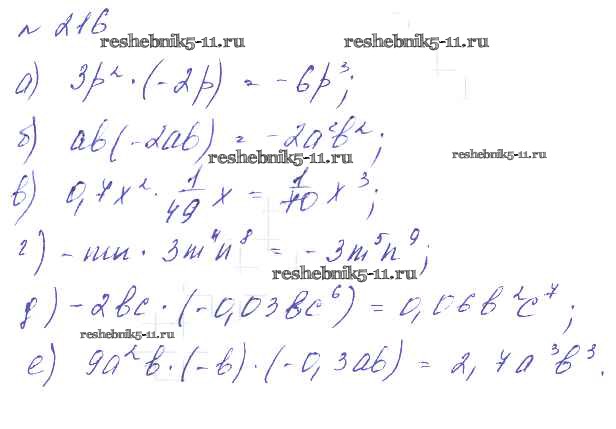 № 216
reshebnik5-11.ru reshebnik5-11.ru
а) 3p² · (-2p) = -6p³;
б) ab(-2ab) = -2a²b²;
reshebnik5-11.ru reshebnik5-11.ru
в) 0,7x² · 1/49 x = 1/70 x³;
г) -mn · 3m⁴n⁸ = -3m⁵n⁹;
reshebnik5-11.ru
д) -2bc · (-0,03bc⁶) = 0,06b²c⁷;
reshebnik5-11.ru
е) 9a²b · (-b) · (-0,3ab) = 2,7a³b³.